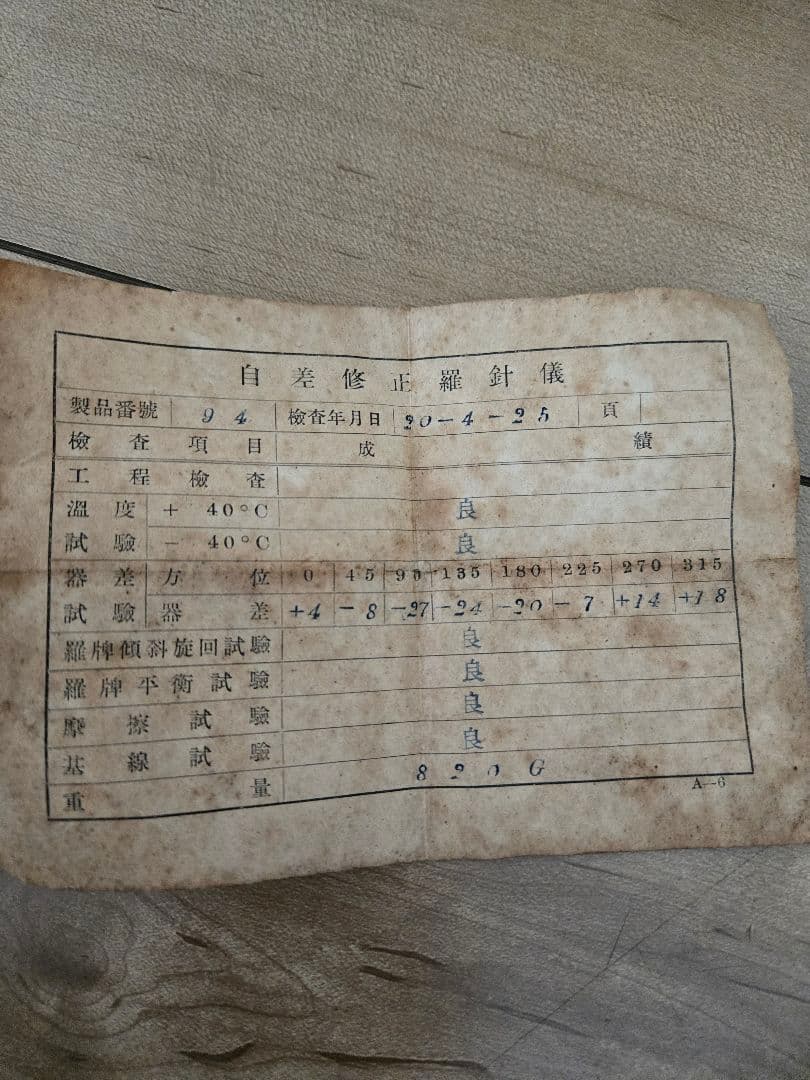 自差修正羅針儀
製品番號 94 檢查年月日 20-4-25 頁
檢查項目 成績
工程檢查
溫度 + 40°C 良
試驗 - 40°C 良
器差 方位 0 45 90 135 180 225 270 315
試驗 器差 +4 -8 -27 -24 -20 -7 +14 +18
羅牌傾斜旋回試驗 良
羅牌平衡試驗 良
摩擦試驗 良
基線試驗 良
重量 820 G
A-6